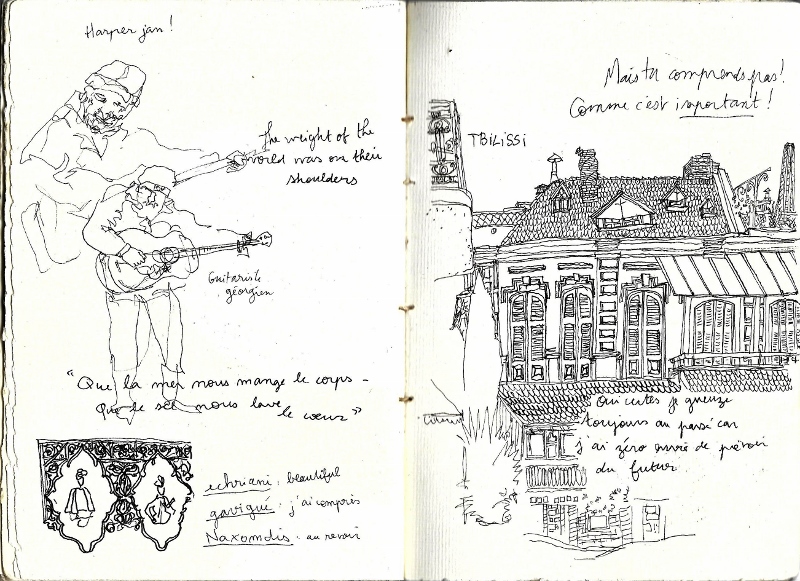 Harper jan !
The weight of the
world was on their
shoulders
Guitariste
géorgien
"Que la mer nous mange le corps -
Que le sel nous lave le cœur"
echriani : beautiful
gavigué : j'ai compris
Naxomdis : au revoir
Mais tu comprends pas !
Comme c'est important !
TBiLiSSi
Oui certes je gueuze
toujours au passé car
j'ai zéro envie de prévoir
du futur.